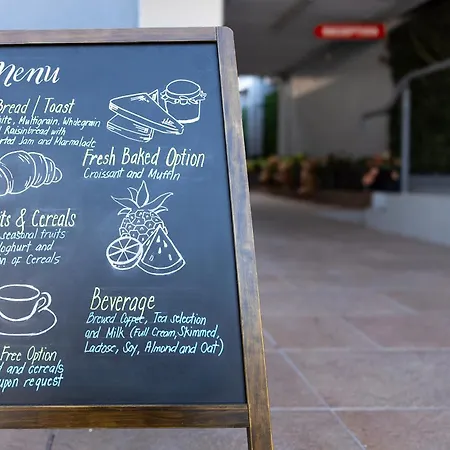 Menu
Bread / Toast
ite, Multigrain, Wholegrain
Raisinbread with
rted Jam and Marmalade
Fresh Baked Option
Croissant and Muffin
ts & Cereals
seasonal fruits
Yoghurt and
on of Cereals
Beverage
Brewed Coffee, Tea selection
and Milk (Full Cream, Skimmed,
Lactose, Soy, Almond and Oat)
Free Option
d and cereals
upon request
RECEPTION